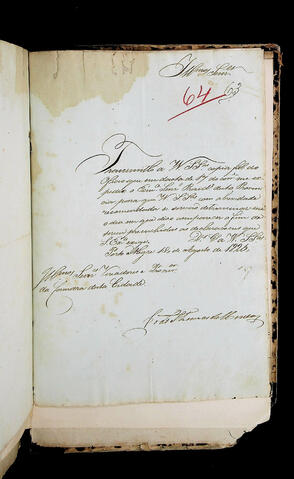 Illmos Senres
64 63
Transmitto a V. S.as copia fiel do
Officio que em data de 17 do cor.e me ex
pedio o Exmo Senr Presid.e desta Provin
cia para que V. S.as com a brevidade
recommendada se sirvão determinar me
o dia em que devo comparecer a fim de
serem preenchidas as declarações que
S. Ex.a exige. D.s G.e a V. S.as
Porto Alegre 18 de Agosto de
Illmos Senres Vereadores e
da Camara desta Cidade.